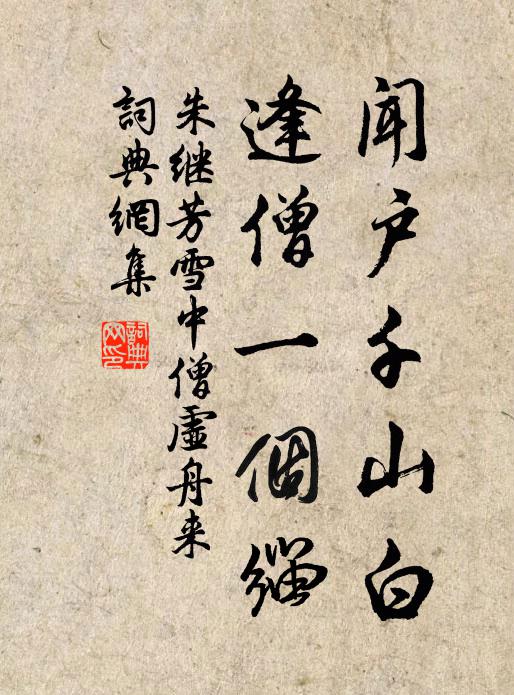 闻户千山白
逢僧一個緇
朱继芳雪中僧虛舟来
詞典網集
詞典
网印